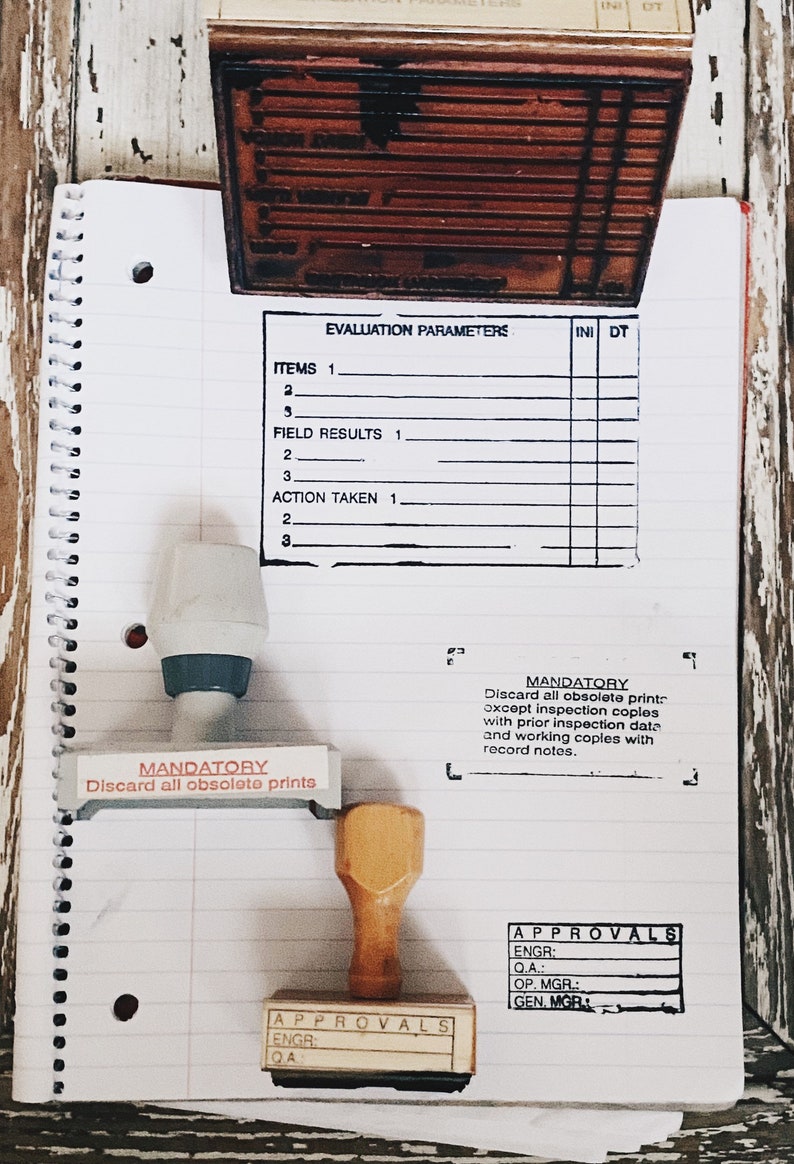 EVALUATION PARAMETERS INI DT
EVALUATION PARAMETERS INI DT
ITEMS 1
2
3
FIELD RESULTS 1
2
3
ACTION TAKEN 1
2
3
MANDATORY
Discard all obsolete prints
except inspection copies
with prior inspection data
and working copies with
record notes.
MANDATORY
Discard all obsolete prints
APPROVALS
ENGR:
Q.A.:
OP. MGR.:
GEN. MGR.:
APPROVALS
ENGR:
Q.A.: